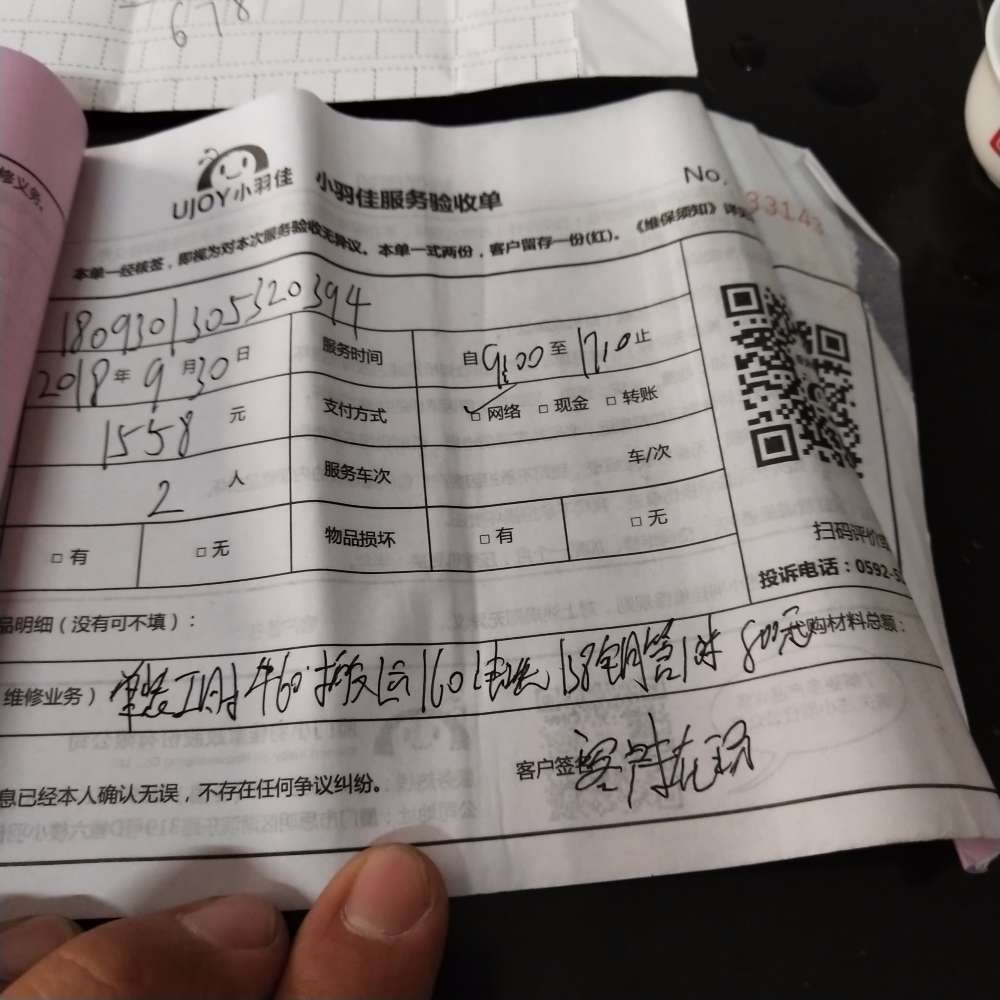 678
修义务。
UJOY小羽佳 小羽佳服务验收单 No. 33143
本单一经核签，即视为对本次服务验收无异议。本单一式两份，客户留存一份(红)。《维保须知》详见
1809301305320394
2018年9月30日 服务时间 自9:00至17:10止
1558元 支付方式 ☑网络 □现金 □转账
2人 服务车次 车/次
□有 □无 物品损坏 □有 □无
扫码评价
投诉电话：0592-5
品明细（没有可不填）：
购材料总额：
维修业务） 工时 460 搬运160 158 铜管1米 800元
客户签
息已经本人确认无误，不存在任何争议纠纷。